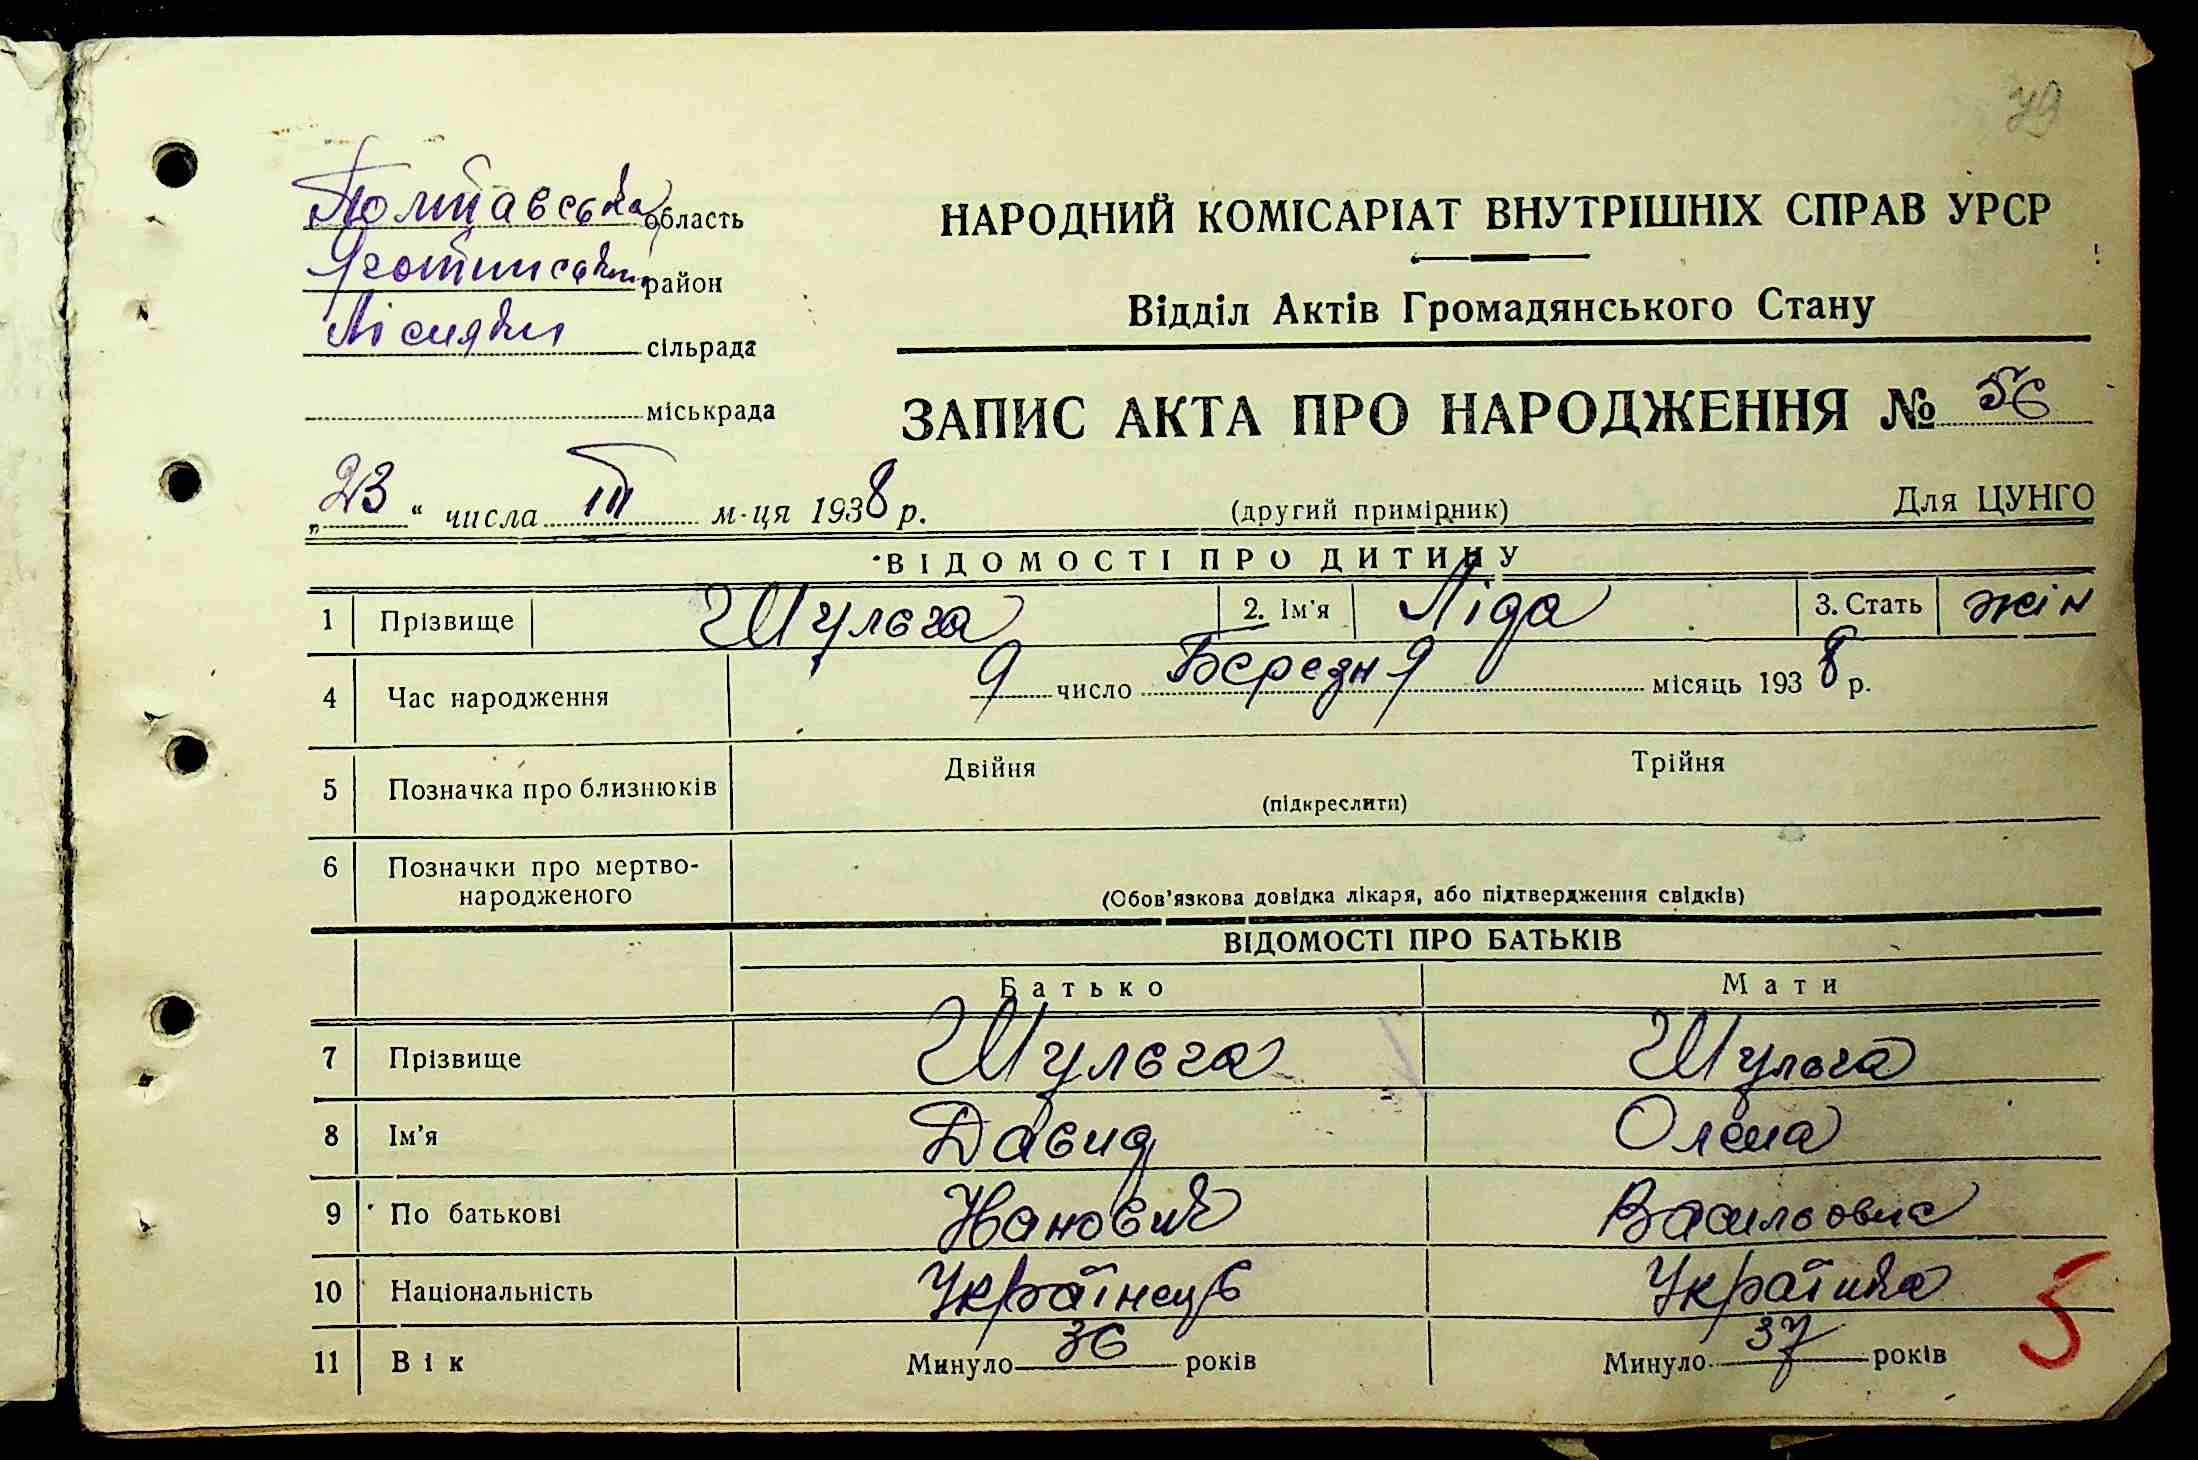 79
Полтавська область
НАРОДНИЙ КОМІСАРІАТ ВНУТРІШНІХ СПРАВ УРСР
Яготинський район
Відділ Актів Громадянського Стану
сільрада
міськрада
ЗАПИС АКТА ПРО НАРОДЖЕННЯ № 56
„23“ числа III м-ця 1938 р.
(другий примірник)
Для ЦУНГО
ВІДОМОСТІ ПРО ДИТИНУ
1 Прізвище Шульга 2. Ім'я Ліда 3. Стать жін
4 Час народження 9 число Березня місяць 1938 р.
5 Позначка про близнюків Двійня Трійня
(підкреслити)
6 Позначки про мертво-
народженого
(Обов'язкова довідка лікаря, або підтвердження свідків)
ВІДОМОСТІ ПРО БАТЬКІВ
Батько Мати
7 Прізвище Шульга Шульга
8 Ім'я Давид Олена
9 По батькові Васильовна
10 Національність Українець Українка
11 Вік Минуло 36 років Минуло 37 років
5